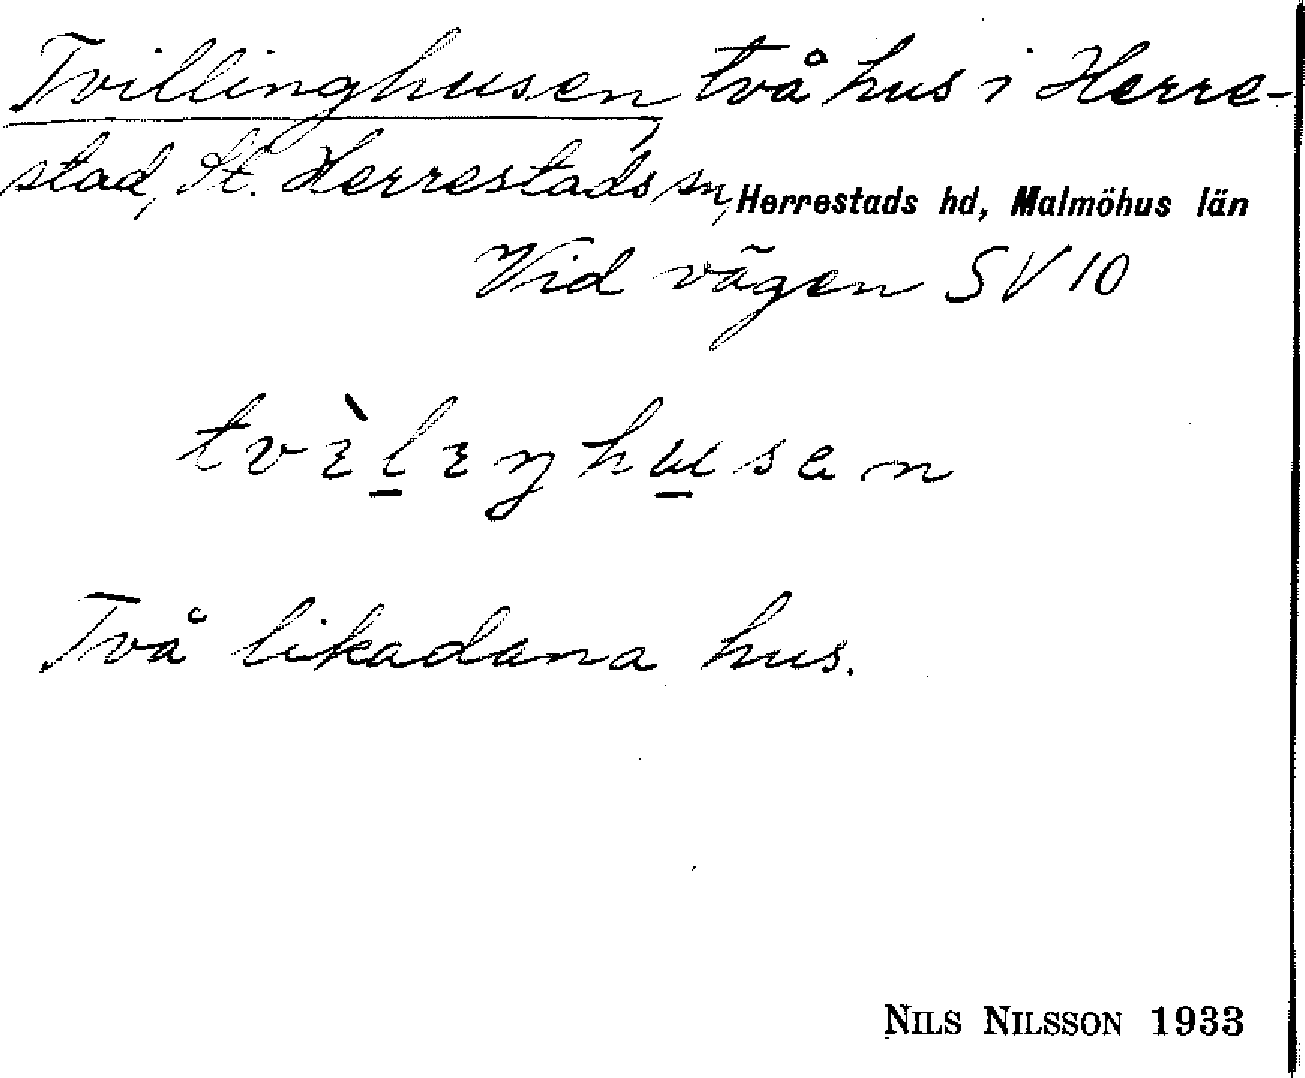 Tvillinghusen, två hus i Herre-
stad, St. Herrestads sn, Herrestads hd, Malmöhus län
Vid vägen SV 10
tvìlıŋhusen
Två likadana hus.
NILS NILSSON 1933